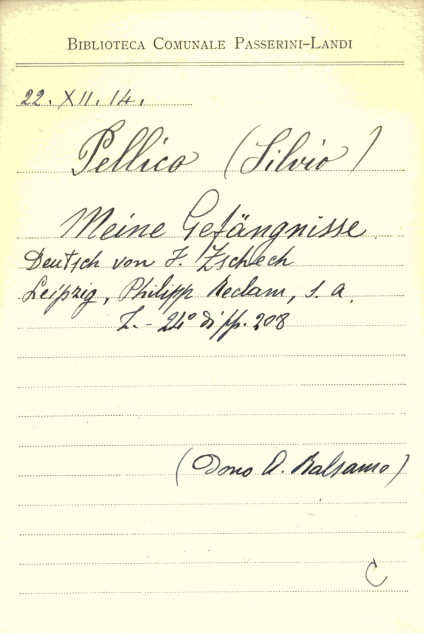 Biblioteca Comunale Passerini-Landi
22. XII. 14.
Pellico (Silvio)
Meine Gefängnisse
Deutsch von F. Zschech
Leipzig, Philipp Reclam, s. a.
Z. - 24° di pp. 208
(Dono A. Balsamo)
C